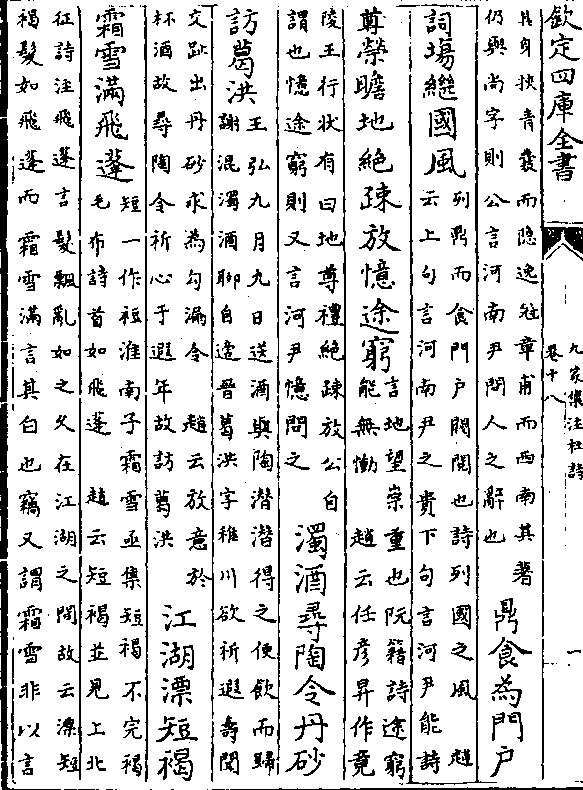 欽定四庫全書
九家集注杜詩
卷十八
一
其身挾青囊而隐逸往章甫而西南其著
仍興尚字則公言河南尹問人之辭也
鼎食為門户
詞塲繼國風
列鼎而食門户閥閱也詩列國之風趙
云上句言河南尹之貴下句言河尹能詩
尊榮瞻地絶疎放憶途窮
言地望崇重也阮籍詩途窮
能無慟 趙云任彦昇作竟
陵王行狀有曰地尊禮絶疎放公自
謂也憶途窮則又言河尹憶問之
濁酒尋陶令丹砂
訪葛洪
王弘九月九日送酒與陶潛潛得之便飲而歸
謝混濁酒聊自適晉葛洪字稚川欲祈遐夀聞
交趾出丹砂求為勾漏令 趙云放意於
杯酒故尋陶令祈心于遐年故訪葛洪
江湖漂短褐
霜雪滿飛蓬
短一作裋淮南子霜雪亟集短褐不完褐
毛布詩首如飛蓬 趙云短褐並見上北
征詩注飛蓬言髮飄亂如之久在江湖之間故云漂短
褐髮如飛蓬而霜雪滿言其白也竊又謂霜雪非以言